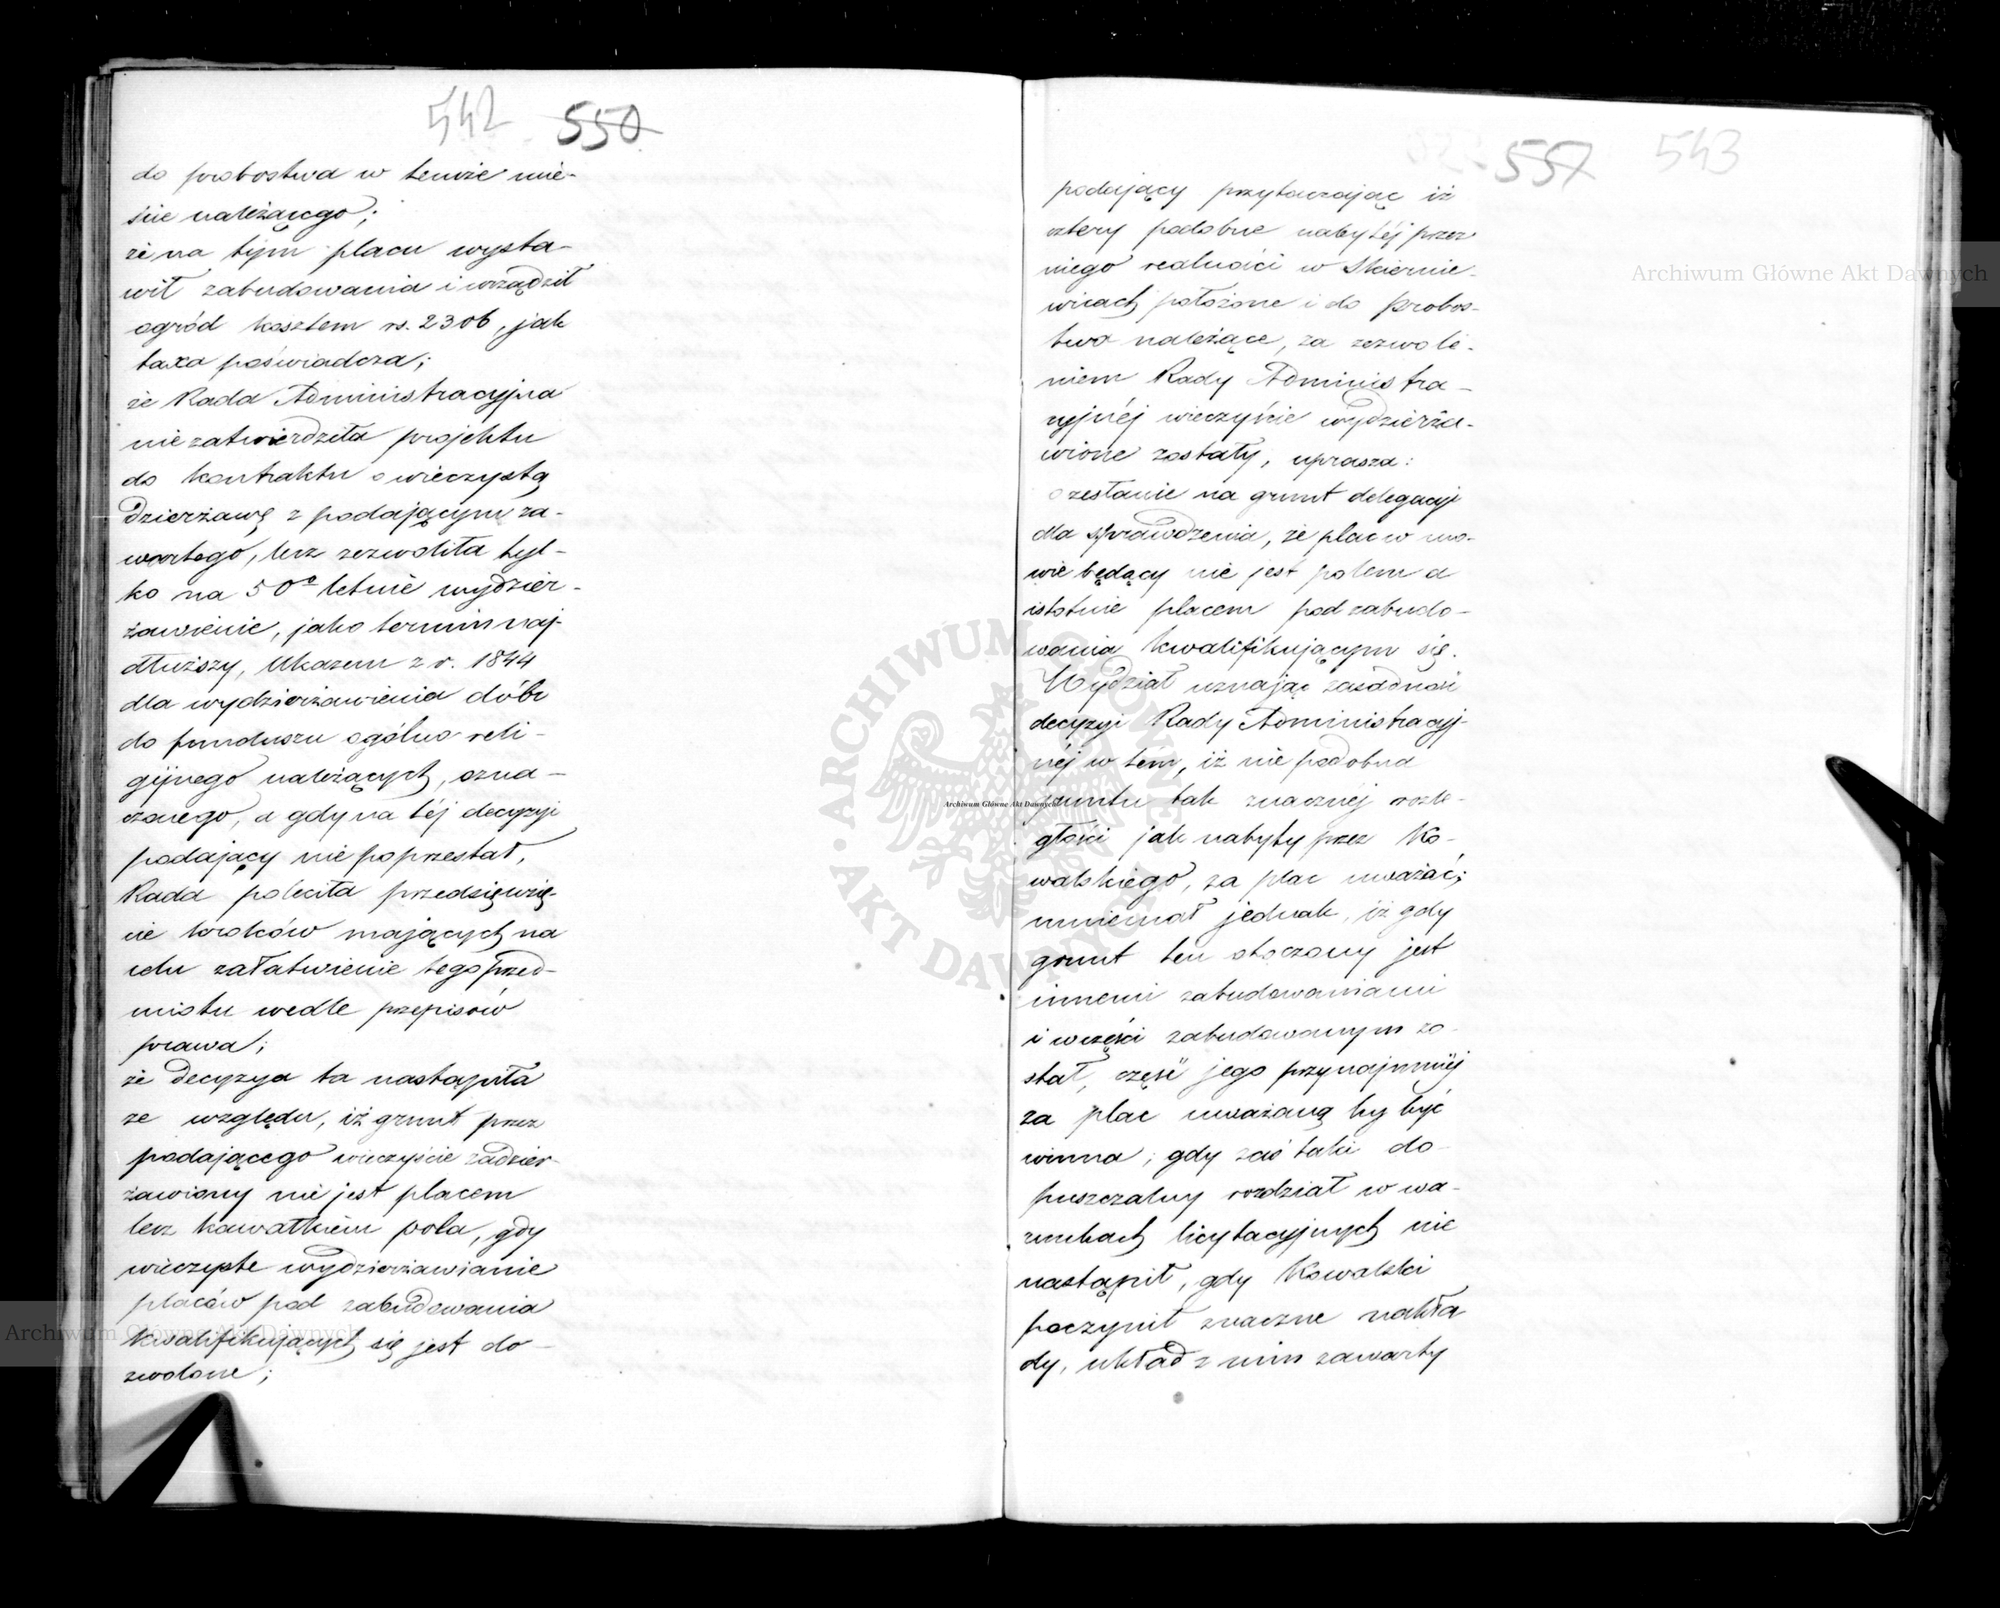 542 550
do probostwa w temże mie-
ście należącego;
że na tym placu wysta-
wił zabudowania i urządził
ogród kosztem rs. 2306, jak
taxa poświadcza;
że Rada Administracyjna
nie zatwierdziła projektu
do kontraktu o wieczystą
dzierżawę z podającym za-
wartego, lecz zezwoliła tyl-
ko na 50o letnie wydzier-
żawienie, jako termin naj-
dłuższy, Ukazem z r. 1844
dla wydzierżawienia dóbr
do funduszu ogólno reli-
gijnego należących, ozna-
czonego, a gdy na téj decyzyi
podający nie poprzestał,
Rada poleciła przedsięwzię-
cie kroków mających na
celu załatwienie tego przed-
miotu wedle przepisów
prawa;
że decyzya ta nastąpiła
ze względu, iż grunt przez
podającego wieczyście zadzier-
żawiony nie jest placem
lecz kawałkiem pola, gdy
wieczyste wydzierżawianie
placów pod zabudowania
kwalifikujących się jest do-
zwolone;
557 543
podający przytaczając iż
cztery podobne nabytéj przez
niego realności w Skiernie-
wicach położone i do probos-
twa należące, za zezwole-
niem Rady Administra-
cyjnéj wieczyście wydzierża-
wione zostały, uprasza:
o zesłanie na grunt delegacyi
dla sprawdzenia, że plac w mo-
wie będący nie jest polem a
istotnie placem pod zabudo-
wania kwalifikującym się.
Wydział uznając zasadność
decyzyi Rady Administracyj-
néj w tém, iż nie podobna
gruntu tak znacznéj rozle-
głości jak nabyty przez Ko-
walskiego, za plac uważać;
mniemał jednak, iż gdy
grunt ten otoczony jest
innemi zabudowaniami
i w części zabudowanym zo-
stał, część jego przynajmniéj
za plac uważaną by być
winna; gdy zaś taki do-
puszczalny rozdział w wa-
runkach licytacyjnych nie
nastąpił, gdy Kowalski
poczynił znaczne nakła
dy, układ z nim zawarty
Archiwum Główne Akt Dawnych
Archiwum Główne Akt Dawnych
Archiwum Główne Akt Dawnych
ARCHIWUM GŁÓWNE AKT DAWNYCH